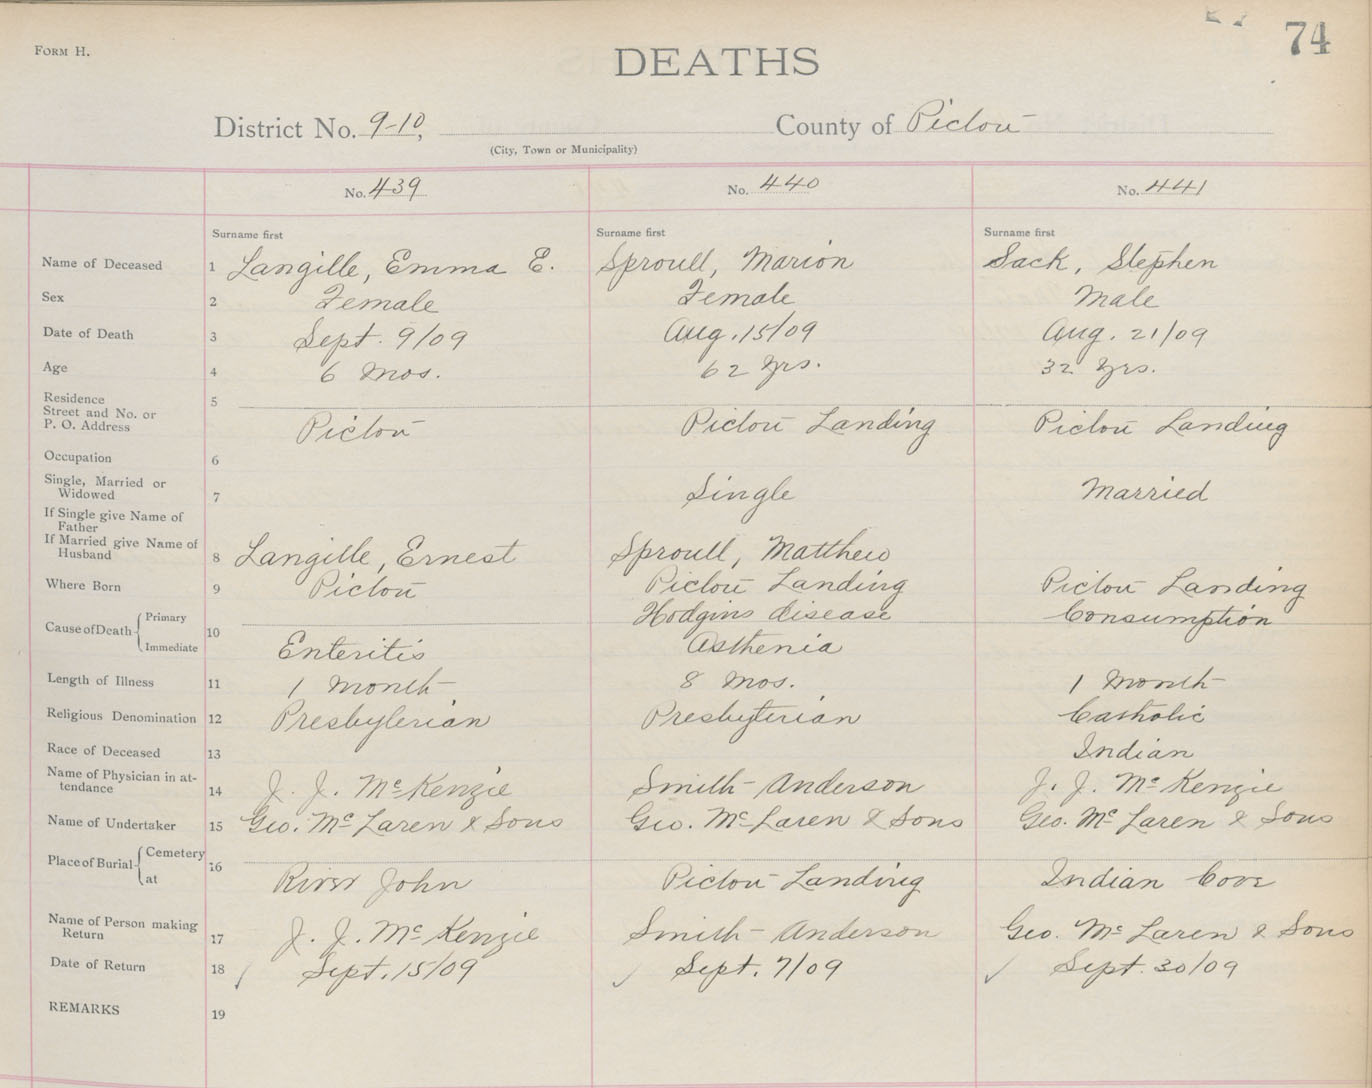 74
FORM H.
DEATHS
District No. 9-10, County of Pictou
(City, Town or Municipality)
No. 439 No. 440 No. 441
Surname first Surname first Surname first
Name of Deceased 1 Langille, Emma E. Sproull, Marion Sack, Stephen
Sex 2 Female Female Male
Date of Death 3 Sept. 9/09 Aug. 15/09 Aug. 21/09
Age 4 6 mos. 62 yrs. 32 yrs.
Residence 5
Street and No. or
P. O. Address Pictou Pictou Landing Pictou Landing
Occupation 6
Single, Married or
Widowed 7 Single Married
If Single give Name of
Father
If Married give Name of
Husband 8 Langille, Ernest Sproull, Matthew
Where Born 9 Pictou Pictou Landing Pictou Landing
Cause of Death { Primary Hodgins disease Consumption
10
Immediate Enteritis Asthenia
Length of Illness 11 1 month 8 mos. 1 month
Religious Denomination 12 Presbyterian Presbyterian Catholic
Race of Deceased 13 Indian
Name of Physician in at-
tendance 14 J. J. McKenzie Smith-Anderson J. J. McKenzie
Name of Undertaker 15 Geo. McLaren & Sons Geo. McLaren & Sons Geo. McLaren & Sons
Place of Burial { Cemetery 16
at River John Pictou Landing Indian Cove
Name of Person making
Return 17 J. J. McKenzie Smith-Anderson Geo. McLaren & Sons
Date of Return 18 Sept. 15/09 Sept. 7/09 Sept. 30/09
REMARKS 19